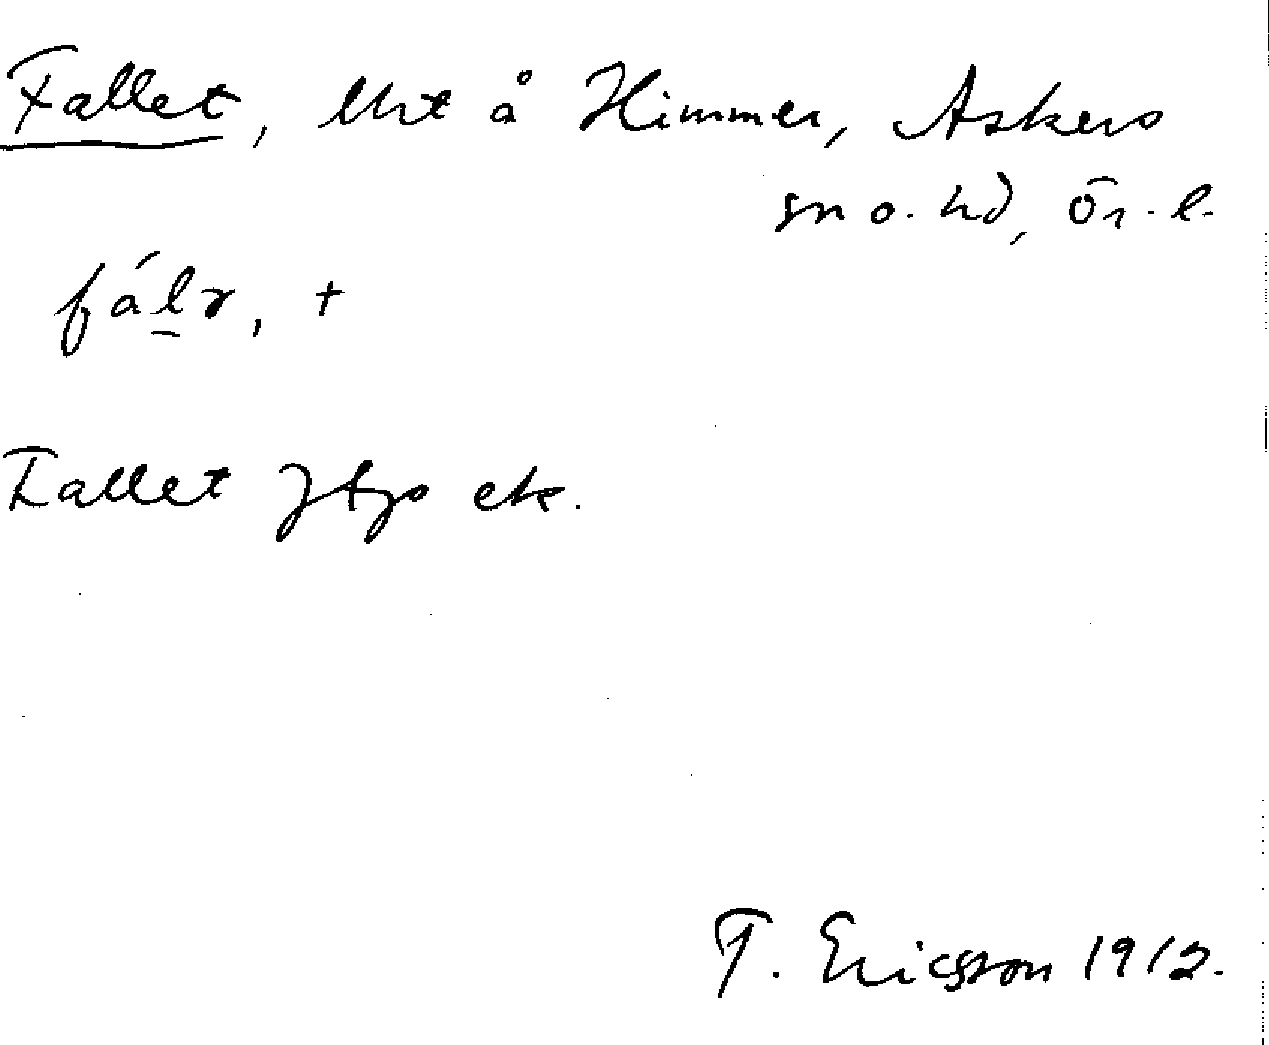 Fallet, lht å Himmer, Askers
sn o. hd, Ör. l.
fál̲r, +
Fallet Jb etc.
T. Ericsson 1912.